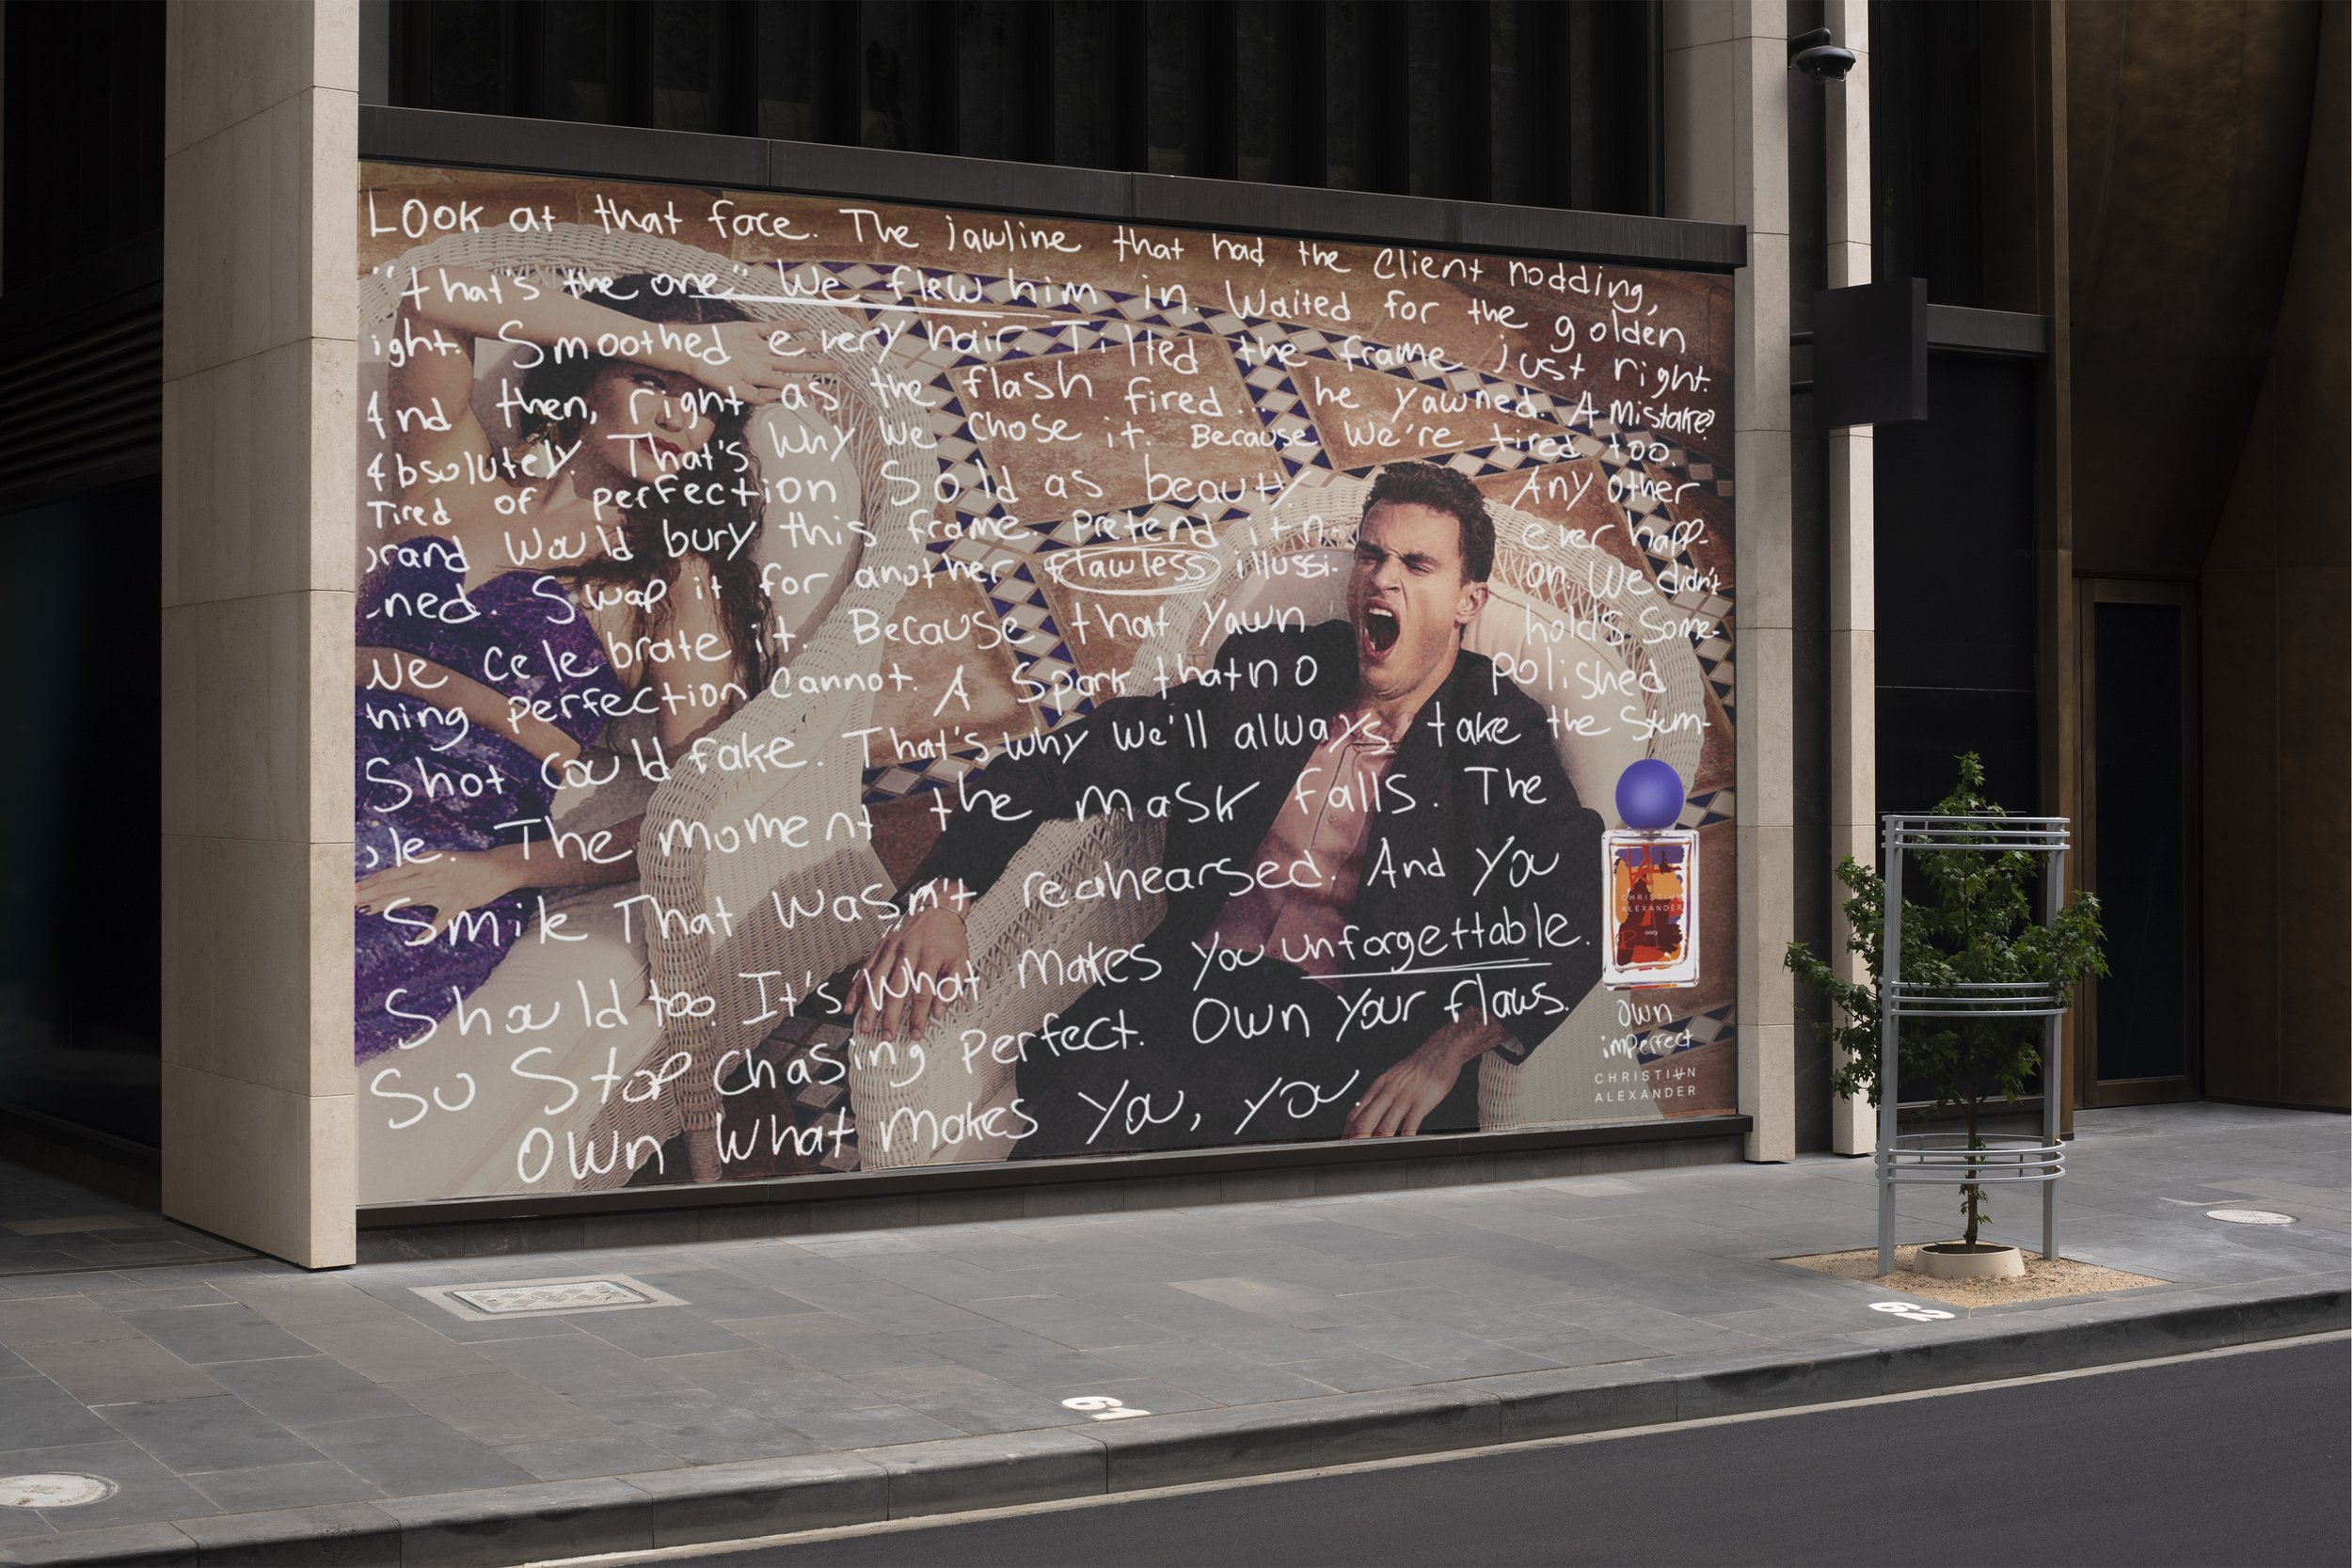 Look at that face. The jawline that had the client nodding,
"that's the one" We flew him in. Waited for the golden
ight. Smoothed every hair Tilted the frame just right.
And then, right as the flash fired... he yawned. A mistake?
Absolutely. That's why we chose it. Because we're tired too.
Tired of perfection Sold as beauty. Any other
rand would bury this frame. Pretend it n.. ever happ-
ned. Swap it for another flawless illussi- on. We didn't
We celebrate it. Because that yawn holds Some-
hing perfection cannot. A Spark that no polished
Shot could fake. That's why we'll always take the Stum-
le. The moment the mask falls. The
Smile That wasn't reahearsed. And you
Should too. It's what makes you unforgettable.
So Stop chasing perfect. Own your flaws.
Own what makes you, you.
CHRISTIUN
ALEXANDER
cozy
Own
imperfect
CHRISTIUN
ALEXANDER
61
62